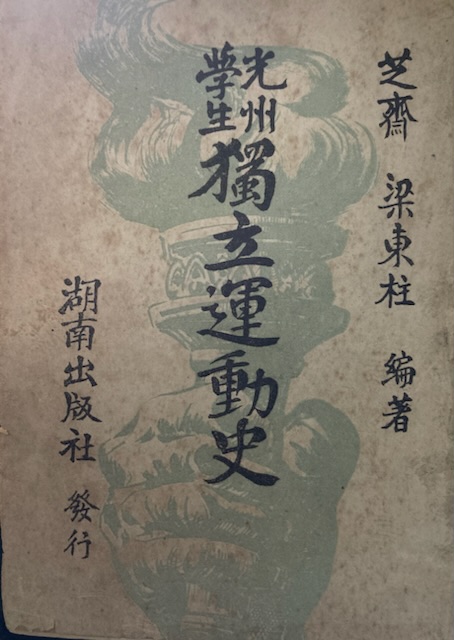 芝齋 梁東柱 編著
光州學生獨立運動史
湖南出版社 發行